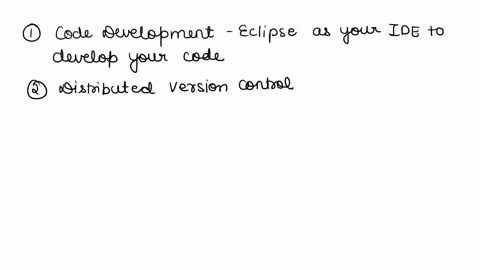 ① Code Development - Eclipse as your IDE to
develop your code
② Distributed Version Control